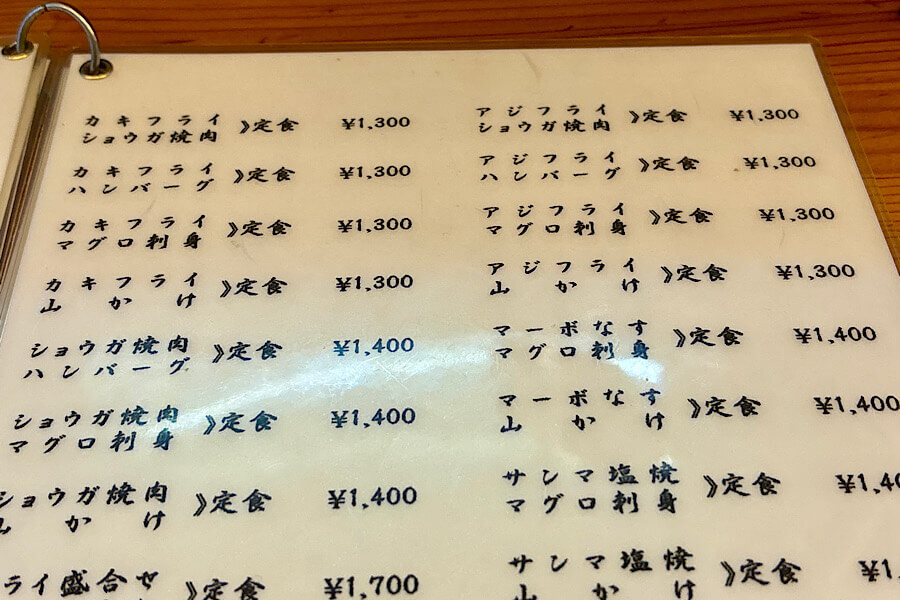 カキフライ
ショウガ焼肉 》定食 ¥1,300
カキフライ
ハンバーグ 》定食 ¥1,300
カキフライ
マグロ刺身 》定食 ¥1,300
カキフライ
山かけ 》定食 ¥1,300
ショウガ焼肉
ハンバーグ 》定食 ¥1,400
ショウガ焼肉
マグロ刺身 》定食 ¥1,400
ショウガ焼肉
山かけ 》定食 ¥1,400
ライ盛合せ 》定食 ¥1,700
アジフライ
ショウガ焼肉 》定食 ¥1,300
アジフライ
ハンバーグ 》定食 ¥1,300
アジフライ
マグロ刺身 》定食 ¥1,300
アジフライ
山かけ 》定食 ¥1,300
マーボなす
マグロ刺身 》定食 ¥1,400
マーボなす
山かけ 》定食 ¥1,400
サンマ塩焼
マグロ刺身 》定食 ¥1,40
サンマ塩焼
山かけ 》定食 ¥1,